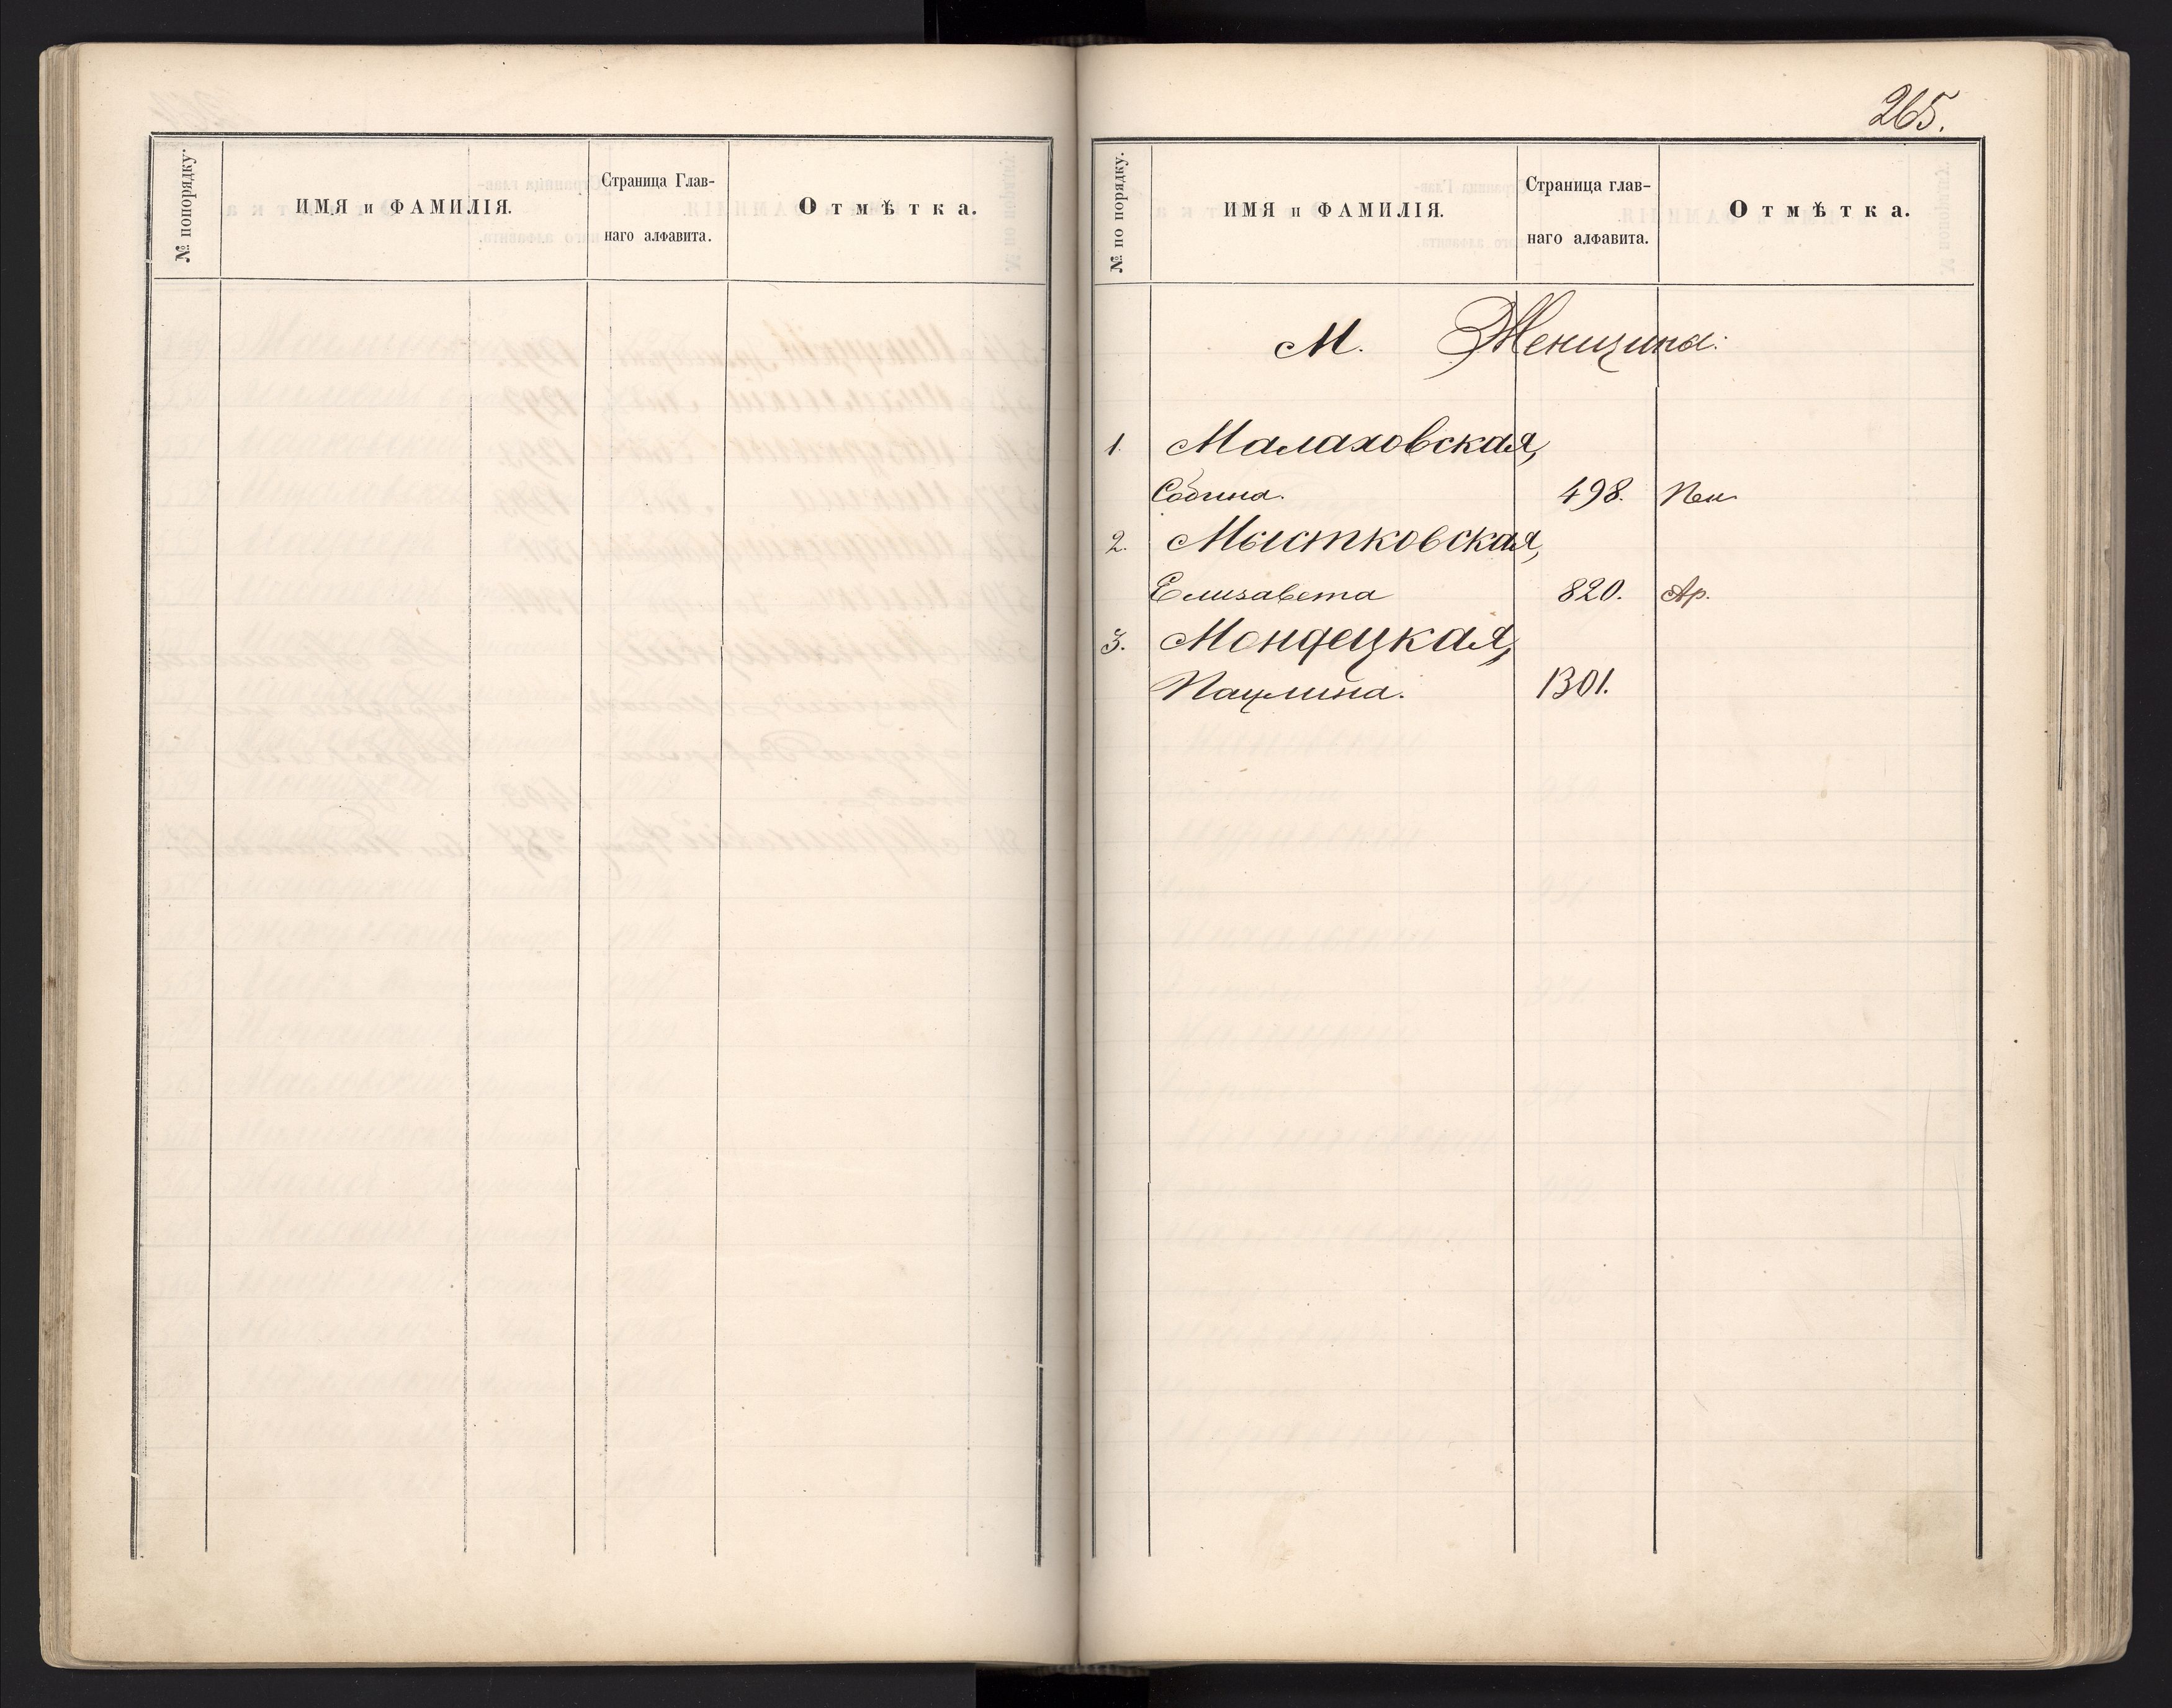 № попорядку.
ИМЯ и ФАМИЛІЯ.
Страница Глав-
наго алфавита.
Отмѣтка.
265.
№ по порядку.
ИМЯ и ФАМИЛІЯ.
Страница глав-
наго алфавита.
Отмѣтка.
М. Женщина:
1. Малаховская,
498.
2. Мыстковская,
Елизавета 820. Ар.
3. Мондецкая,
Паулина. 1301.